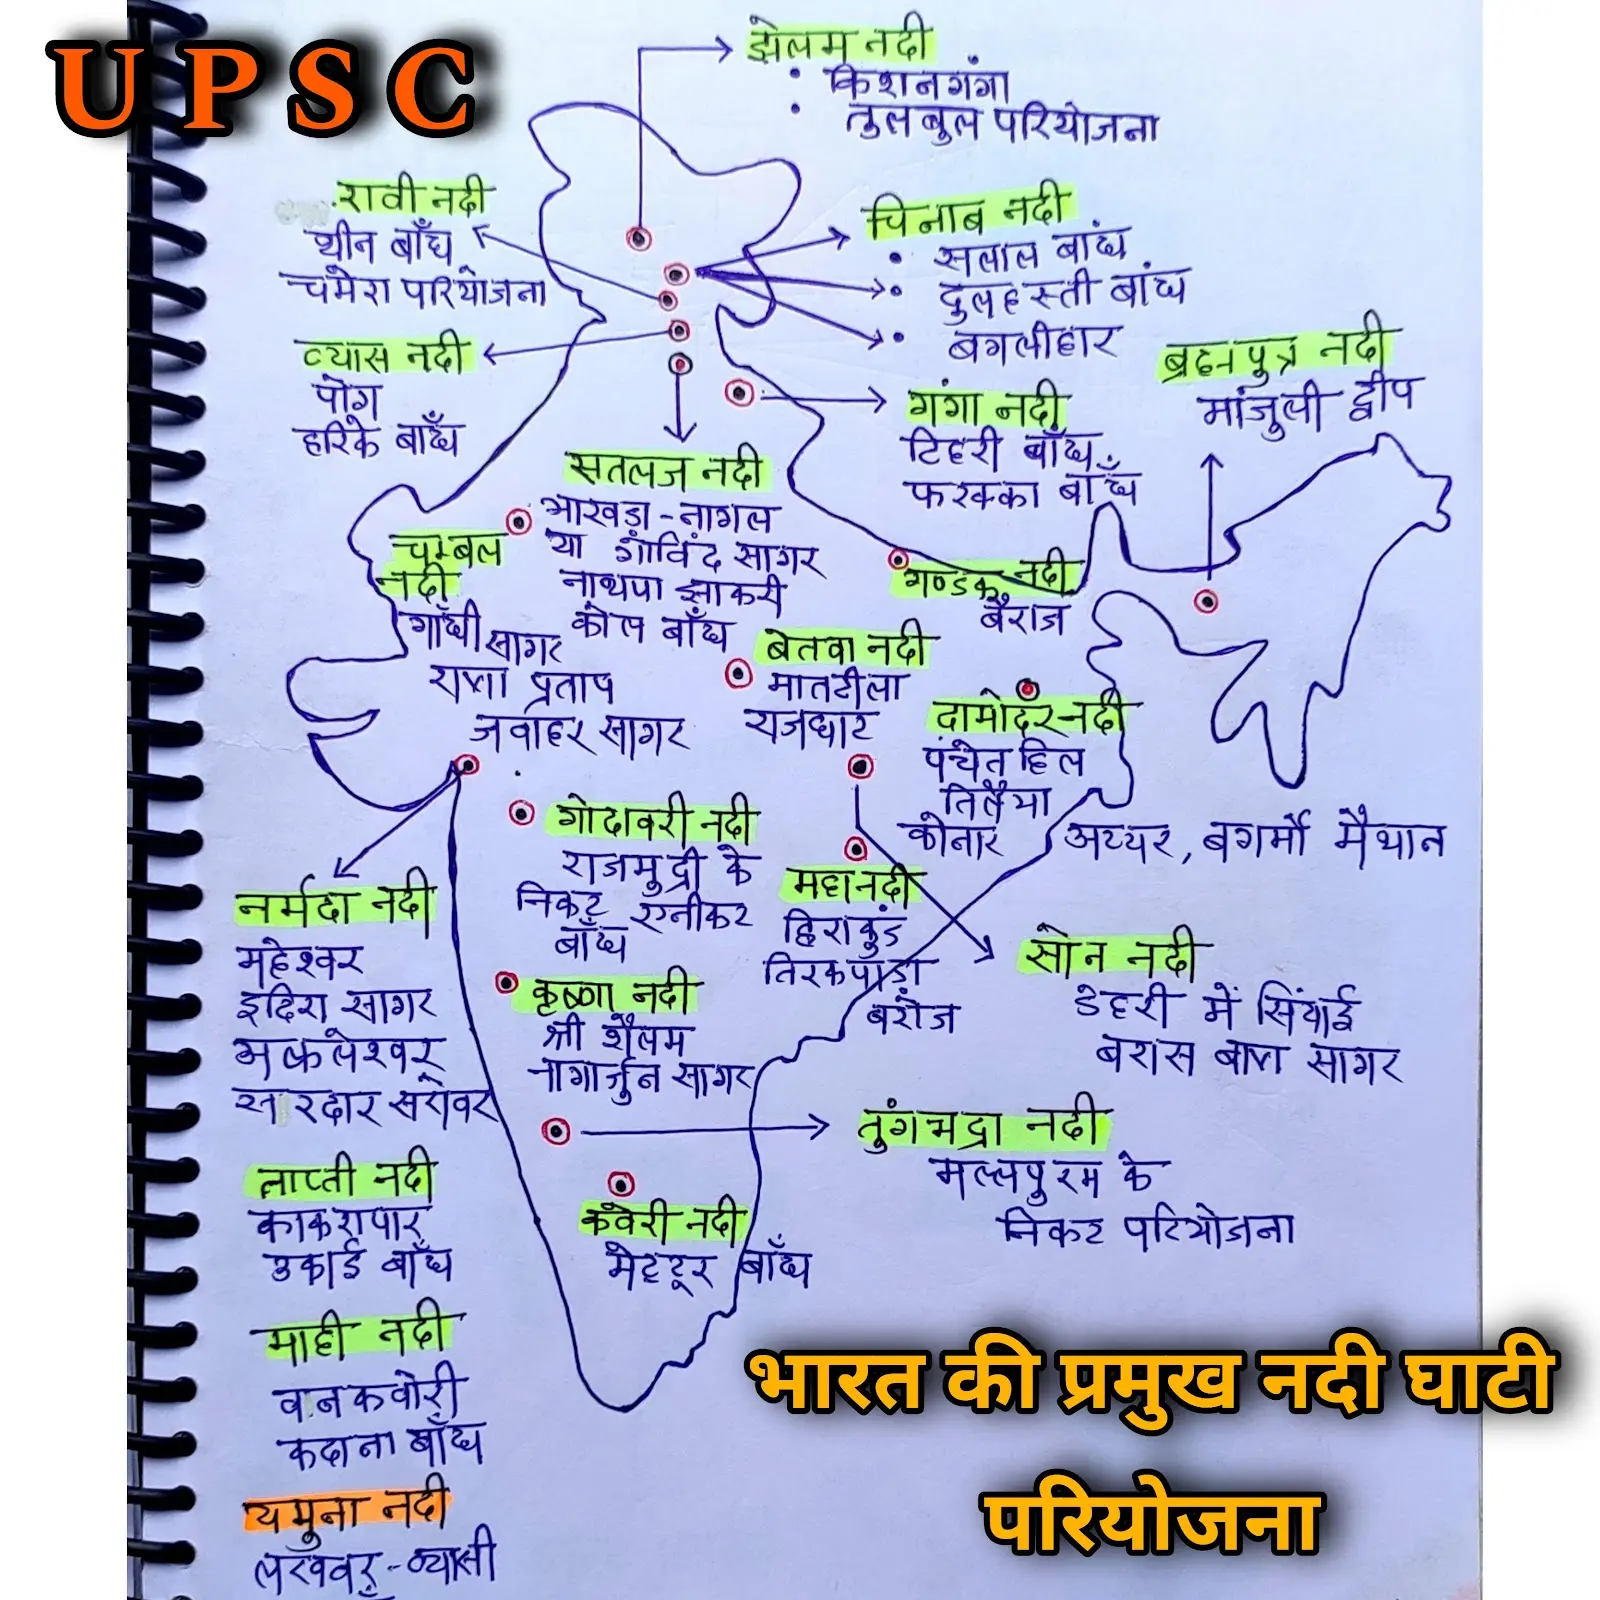 UPSC
झेलम नदी
• किशनगंगा
• तुलबुल परियोजना
रावी नदी
थीन बाँध
चमेरा परियोजना
चिनाब नदी
• सलाल बांध
• दुलहस्ती बांध
• बगलीहार
व्यास नदी
पोंग
हरिके बाँध
ब्रह्मपुत्र नदी
मांजुली द्वीप
गंगा नदी
टिहरी बाँध
फरक्का बाँध
सतलज नदी
भाखड़ा-नांगल
या गोविंद सागर
नाथपा झाकरी
कोल बाँध
चम्बल
नदी
गाँधी सागर
राणा प्रताप
जवाहर सागर
गण्डक नदी
बैराज
बेतवा नदी
माताटीला
राजघाट
दामोदर नदी
पंचेत हिल
तिलैया
कोनार अय्यर, बगर्मो मैथान
गोदावरी नदी
राजमुद्री के
निकट एनीकट
बाँध
महानदी
हिराकुंड
तिरकपाड़ा
बरोज
नर्मदा नदी
महेश्वर
इंदिरा सागर
सरदार सरोवर
सोन नदी
डेहरी में सिंचाई
बरास बाण सागर
कृष्णा नदी
श्री शैलम
नागार्जुन सागर
तुंगभद्रा नदी
मल्लपुरम के
निकट परियोजना
ताप्ती नदी
काकरापार
उकाई बाँध
कवेरी नदी
मेट्टूर बाँध
माही नदी
वनकवोरी
कदाना बाँध
यमुना नदी
लखवर-व्यासी
भारत की प्रमुख नदी घाटी
परियोजना